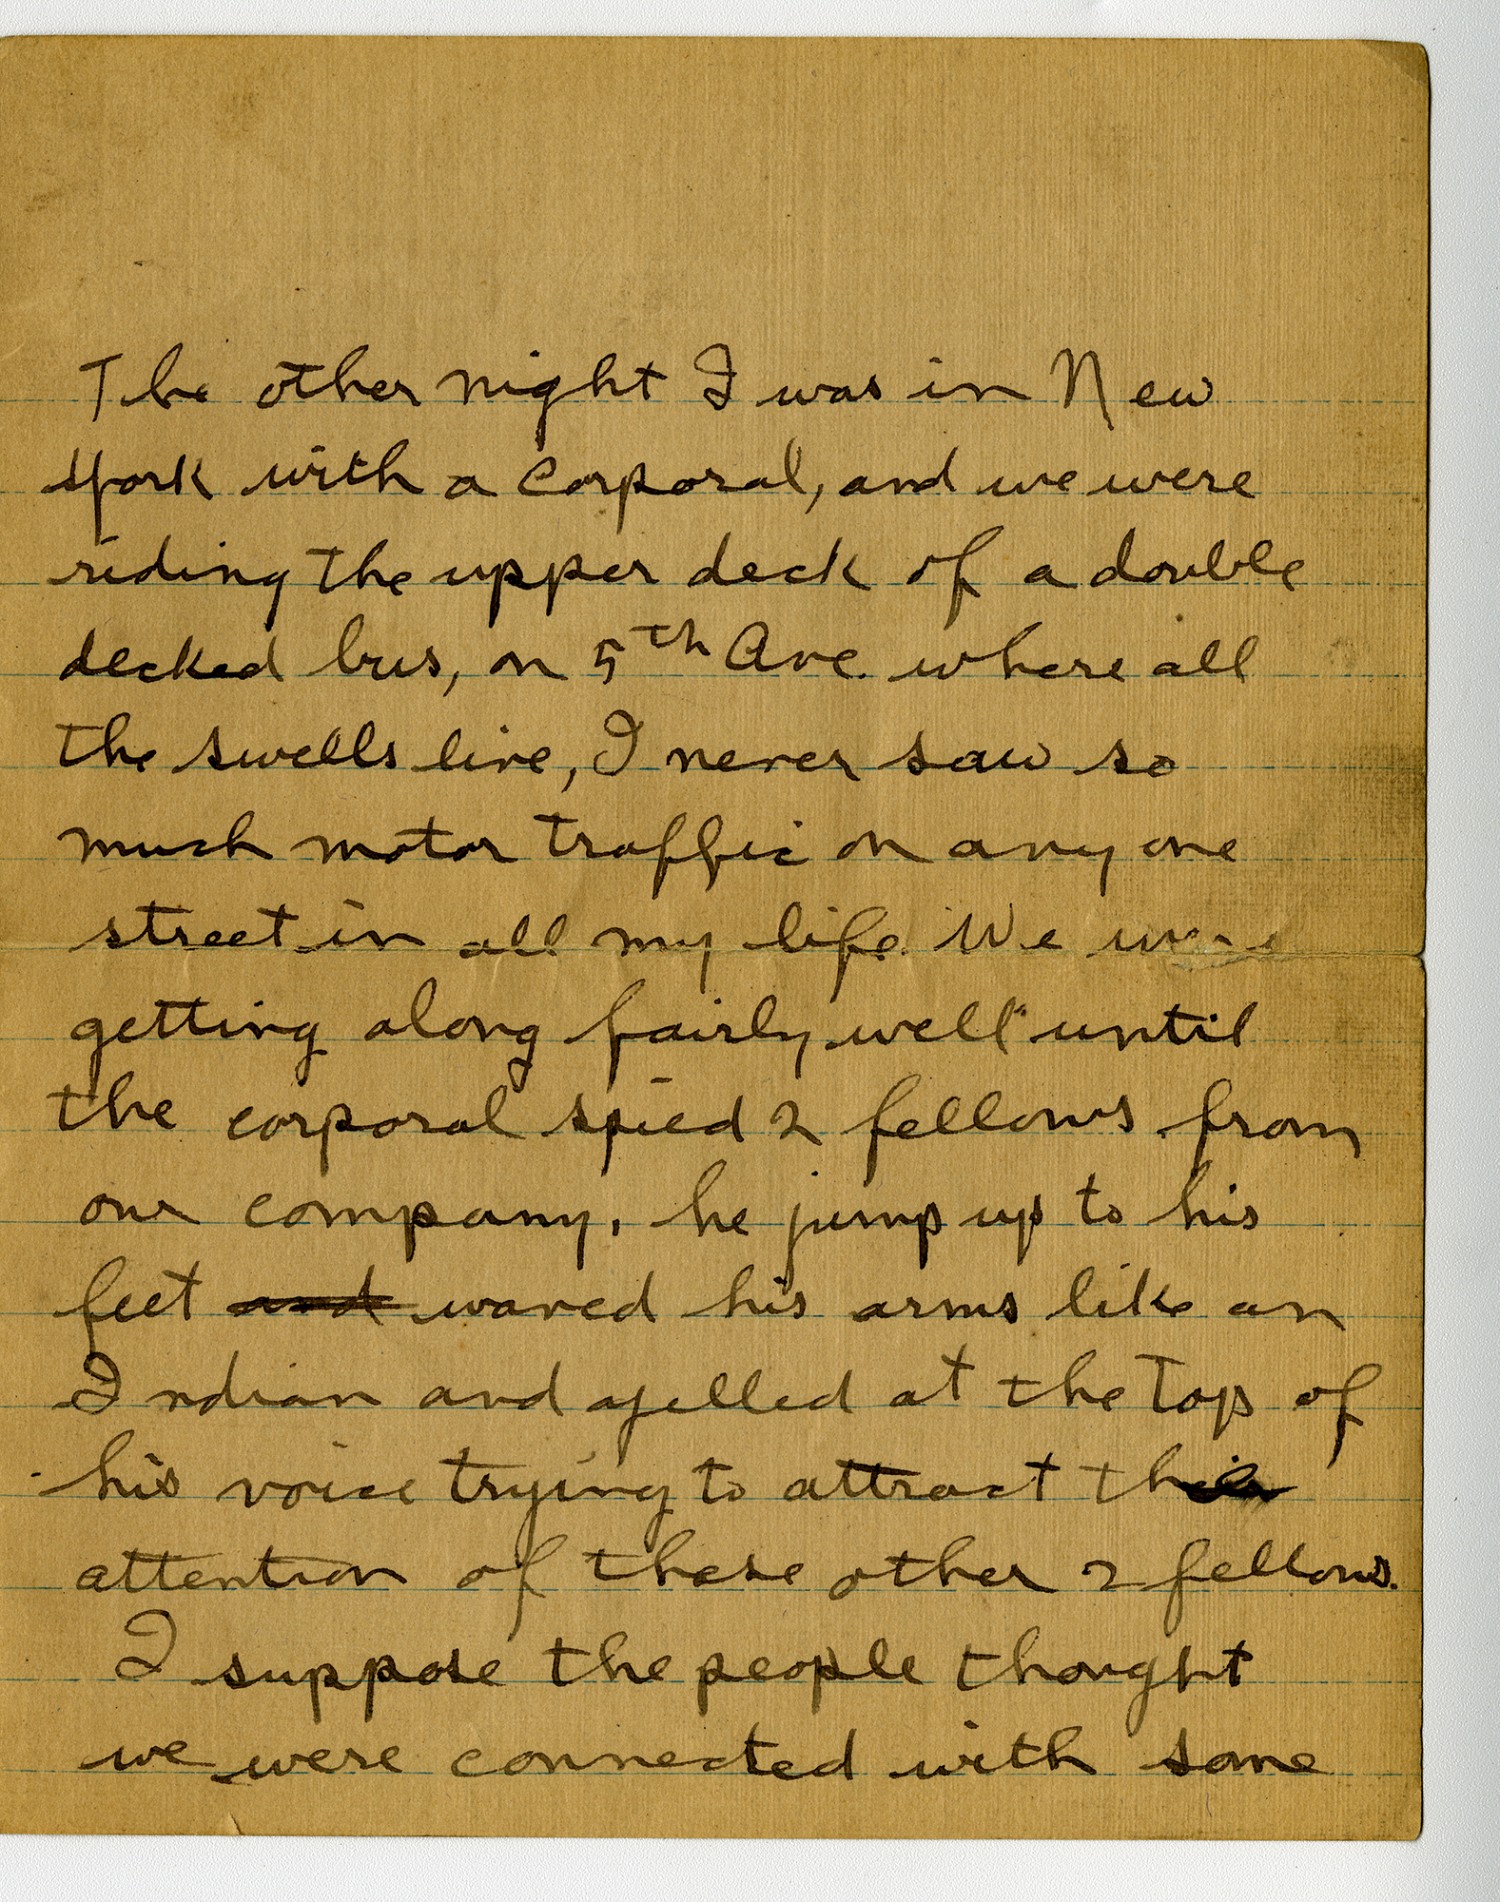 The other night I was in New
York with a corporal, and we were
riding the upper deck of a double
decked bus, on 5th Ave. where all
the swells live, I never saw so
much motor traffic on any one
street in all my life. We were
getting along fairly well until
the corporal spied 2 fellows from
our company, he jump up to his
feet and waved his arms like an
Indian and yelled at the top of
his voice trying to attract the
attention of these other 2 fellows.
I suppose the people thought
we were connected with some